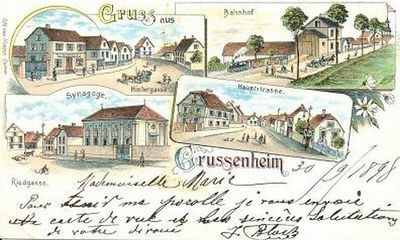 Gruss aus
Bahnhof
Hintergasse
Synagoge.
Hauptstrasse.
Riedgasse.
Grussenheim
30/9/1898
Mademoiselle Marie
Pour tenir ma parole je vous envoie
une carte de vue et mes sincères salutations
de votre dévoué